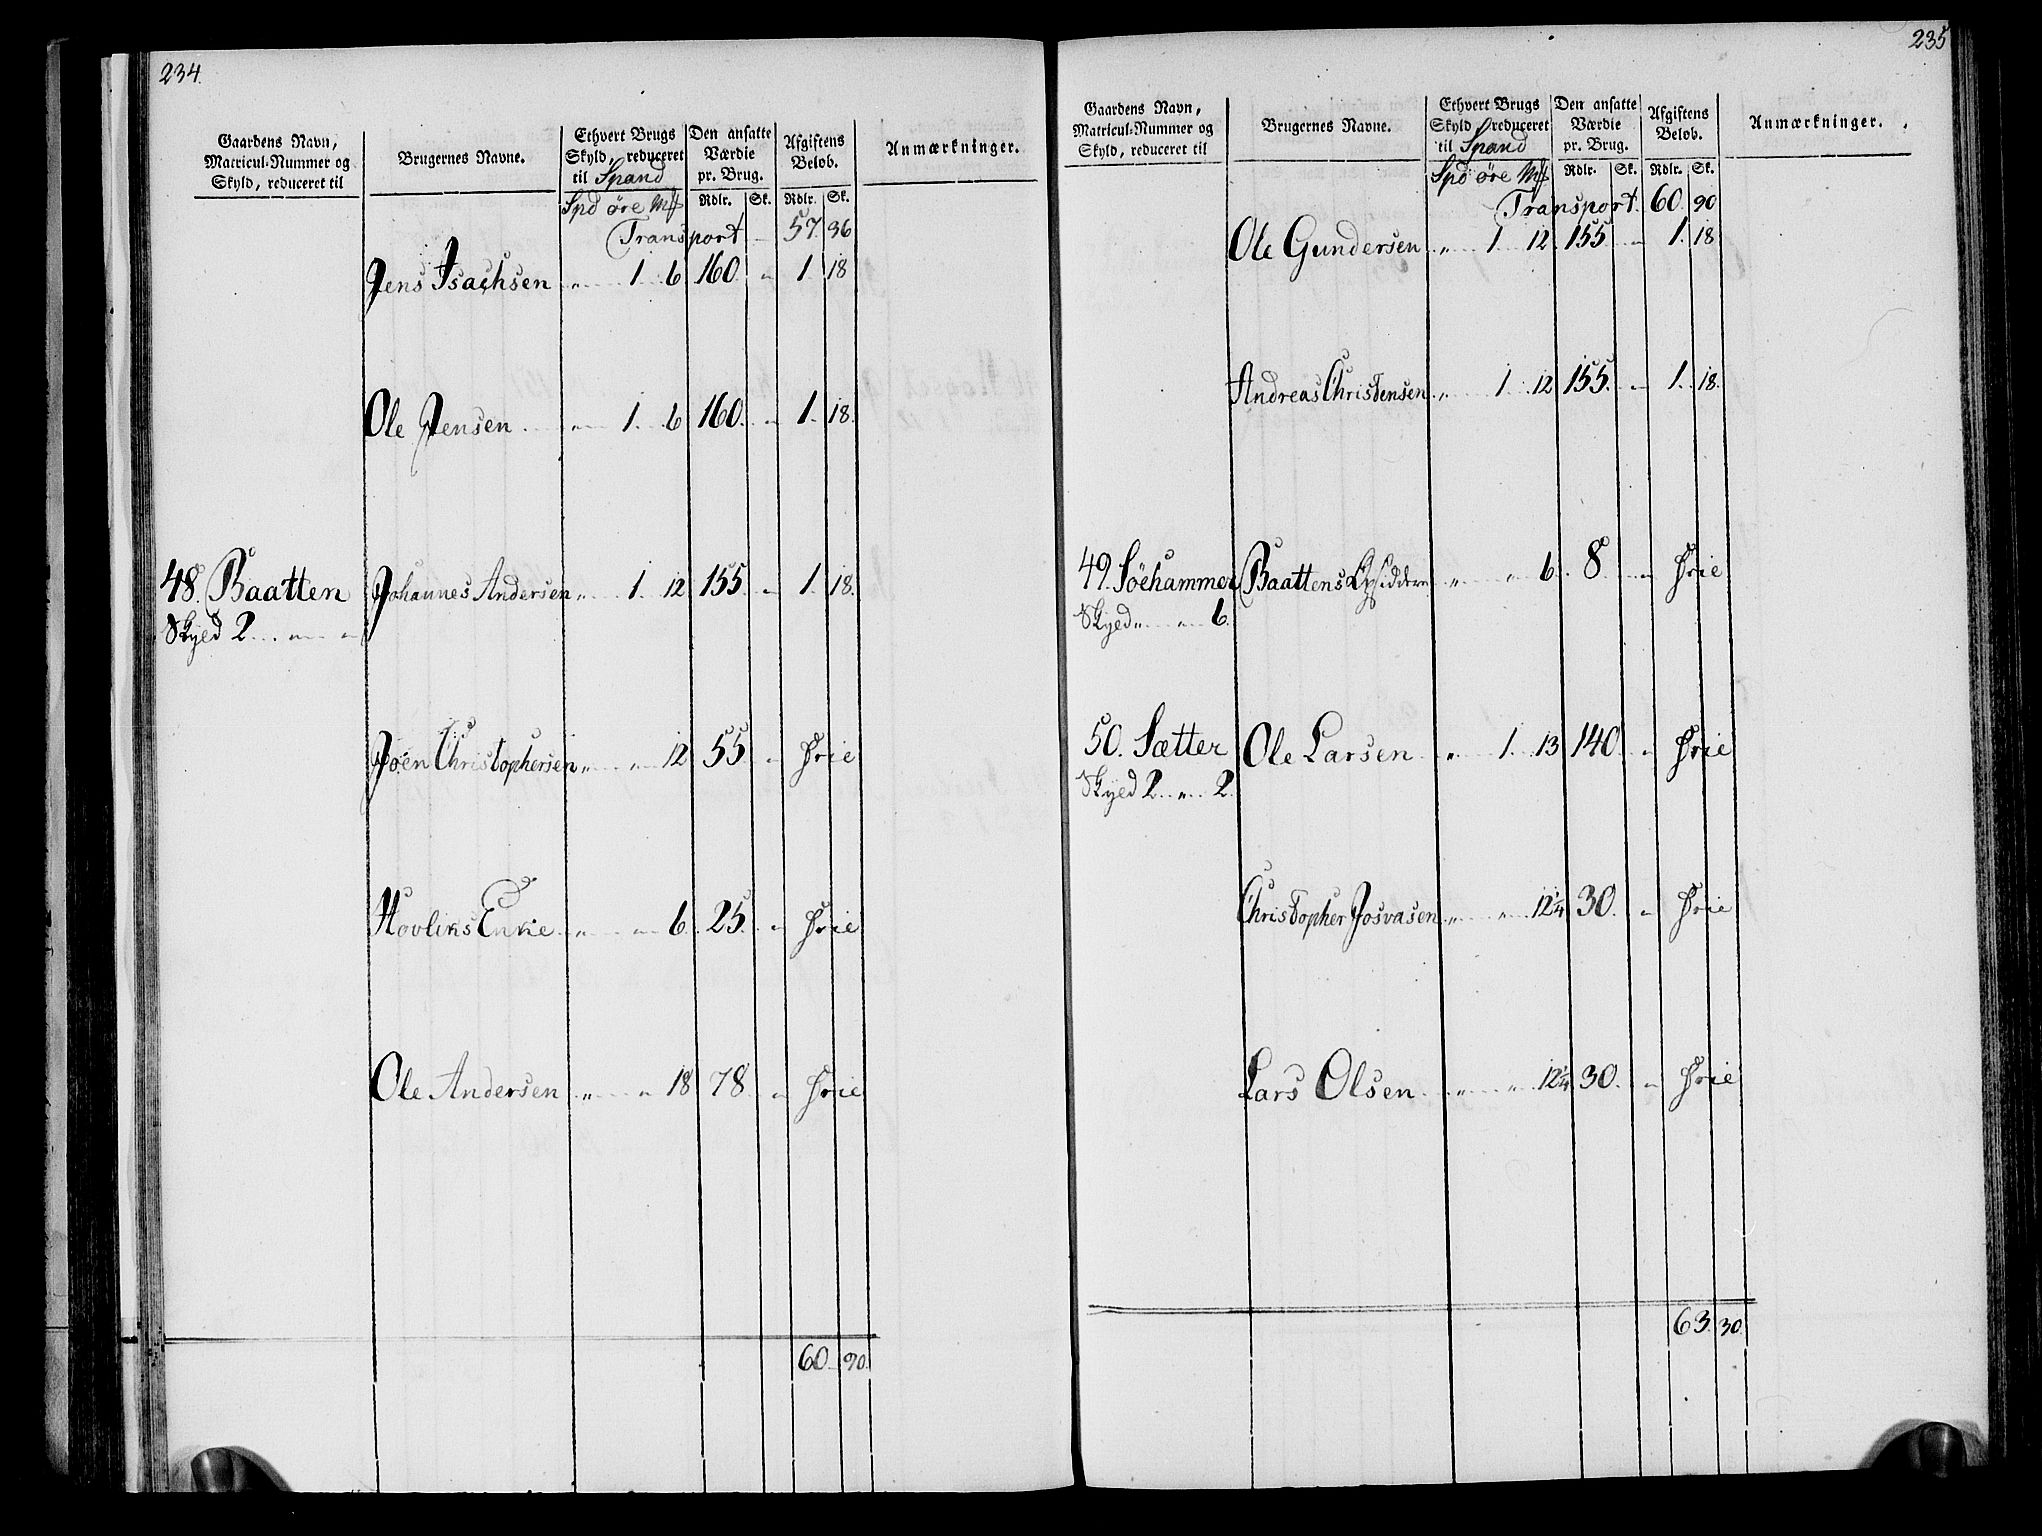 234.
Gaardens Navn, Matricul-Nummer og Skyld, reduceret til | Brugernes Navne. | Ethvert Brugs Skyld, reduceret til Spand | Den ansatte Værdie pr. Brug. | Afgiftens Beløb. | Anmærkninger.
Spd øre Mk | Rdlr. Sk. | Rdlr. Sk.
Transport 57. 36
Jens Isachsen „ 1. 6 160. „ 1. 18
Ole Jensen „ 1. 6 160. „ 1. 18.
48. Baatten Johannes Andersen „ 1. 12 155. „ 1. 18.
Skyed 2. „ „
Joen Christophersen „ „ 12 55 „ frie
Hovliks Enke „ „ 6. 25. „ frie
Ole Andersen „ „ 18 78. „ frie
60. 90.
235
Gaardens Navn, Matricul-Nummer og Skyld, reduceret til | Brugernes Navne. | Ethvert Brugs Skyld, reduceret til Spand | Den ansatte Værdie pr. Brug. | Afgiftens Beløb. | Anmærkninger.
Spd øre Mk | Rdlr. Sk. | Rdlr. Sk.
Transport. 60. 90
Ole Gundersen „ 1. 12 155 „ 1. 18
Andreas Christensen „ 1. 12 155. „ 1. 18.
49. Söehammer Baattens Opsiddere „ „ 6. 8. „ frie
Skyed „ „ 6.
50. Sætter Ole Larsen „ 1. 13 140. „ frie
Skyed 2. „ 2.
Christopher Josvasen „ „ 12¼ 30. „ frie
Lars Olsen „ „ 12¼ 30. „ frie
63. 30.